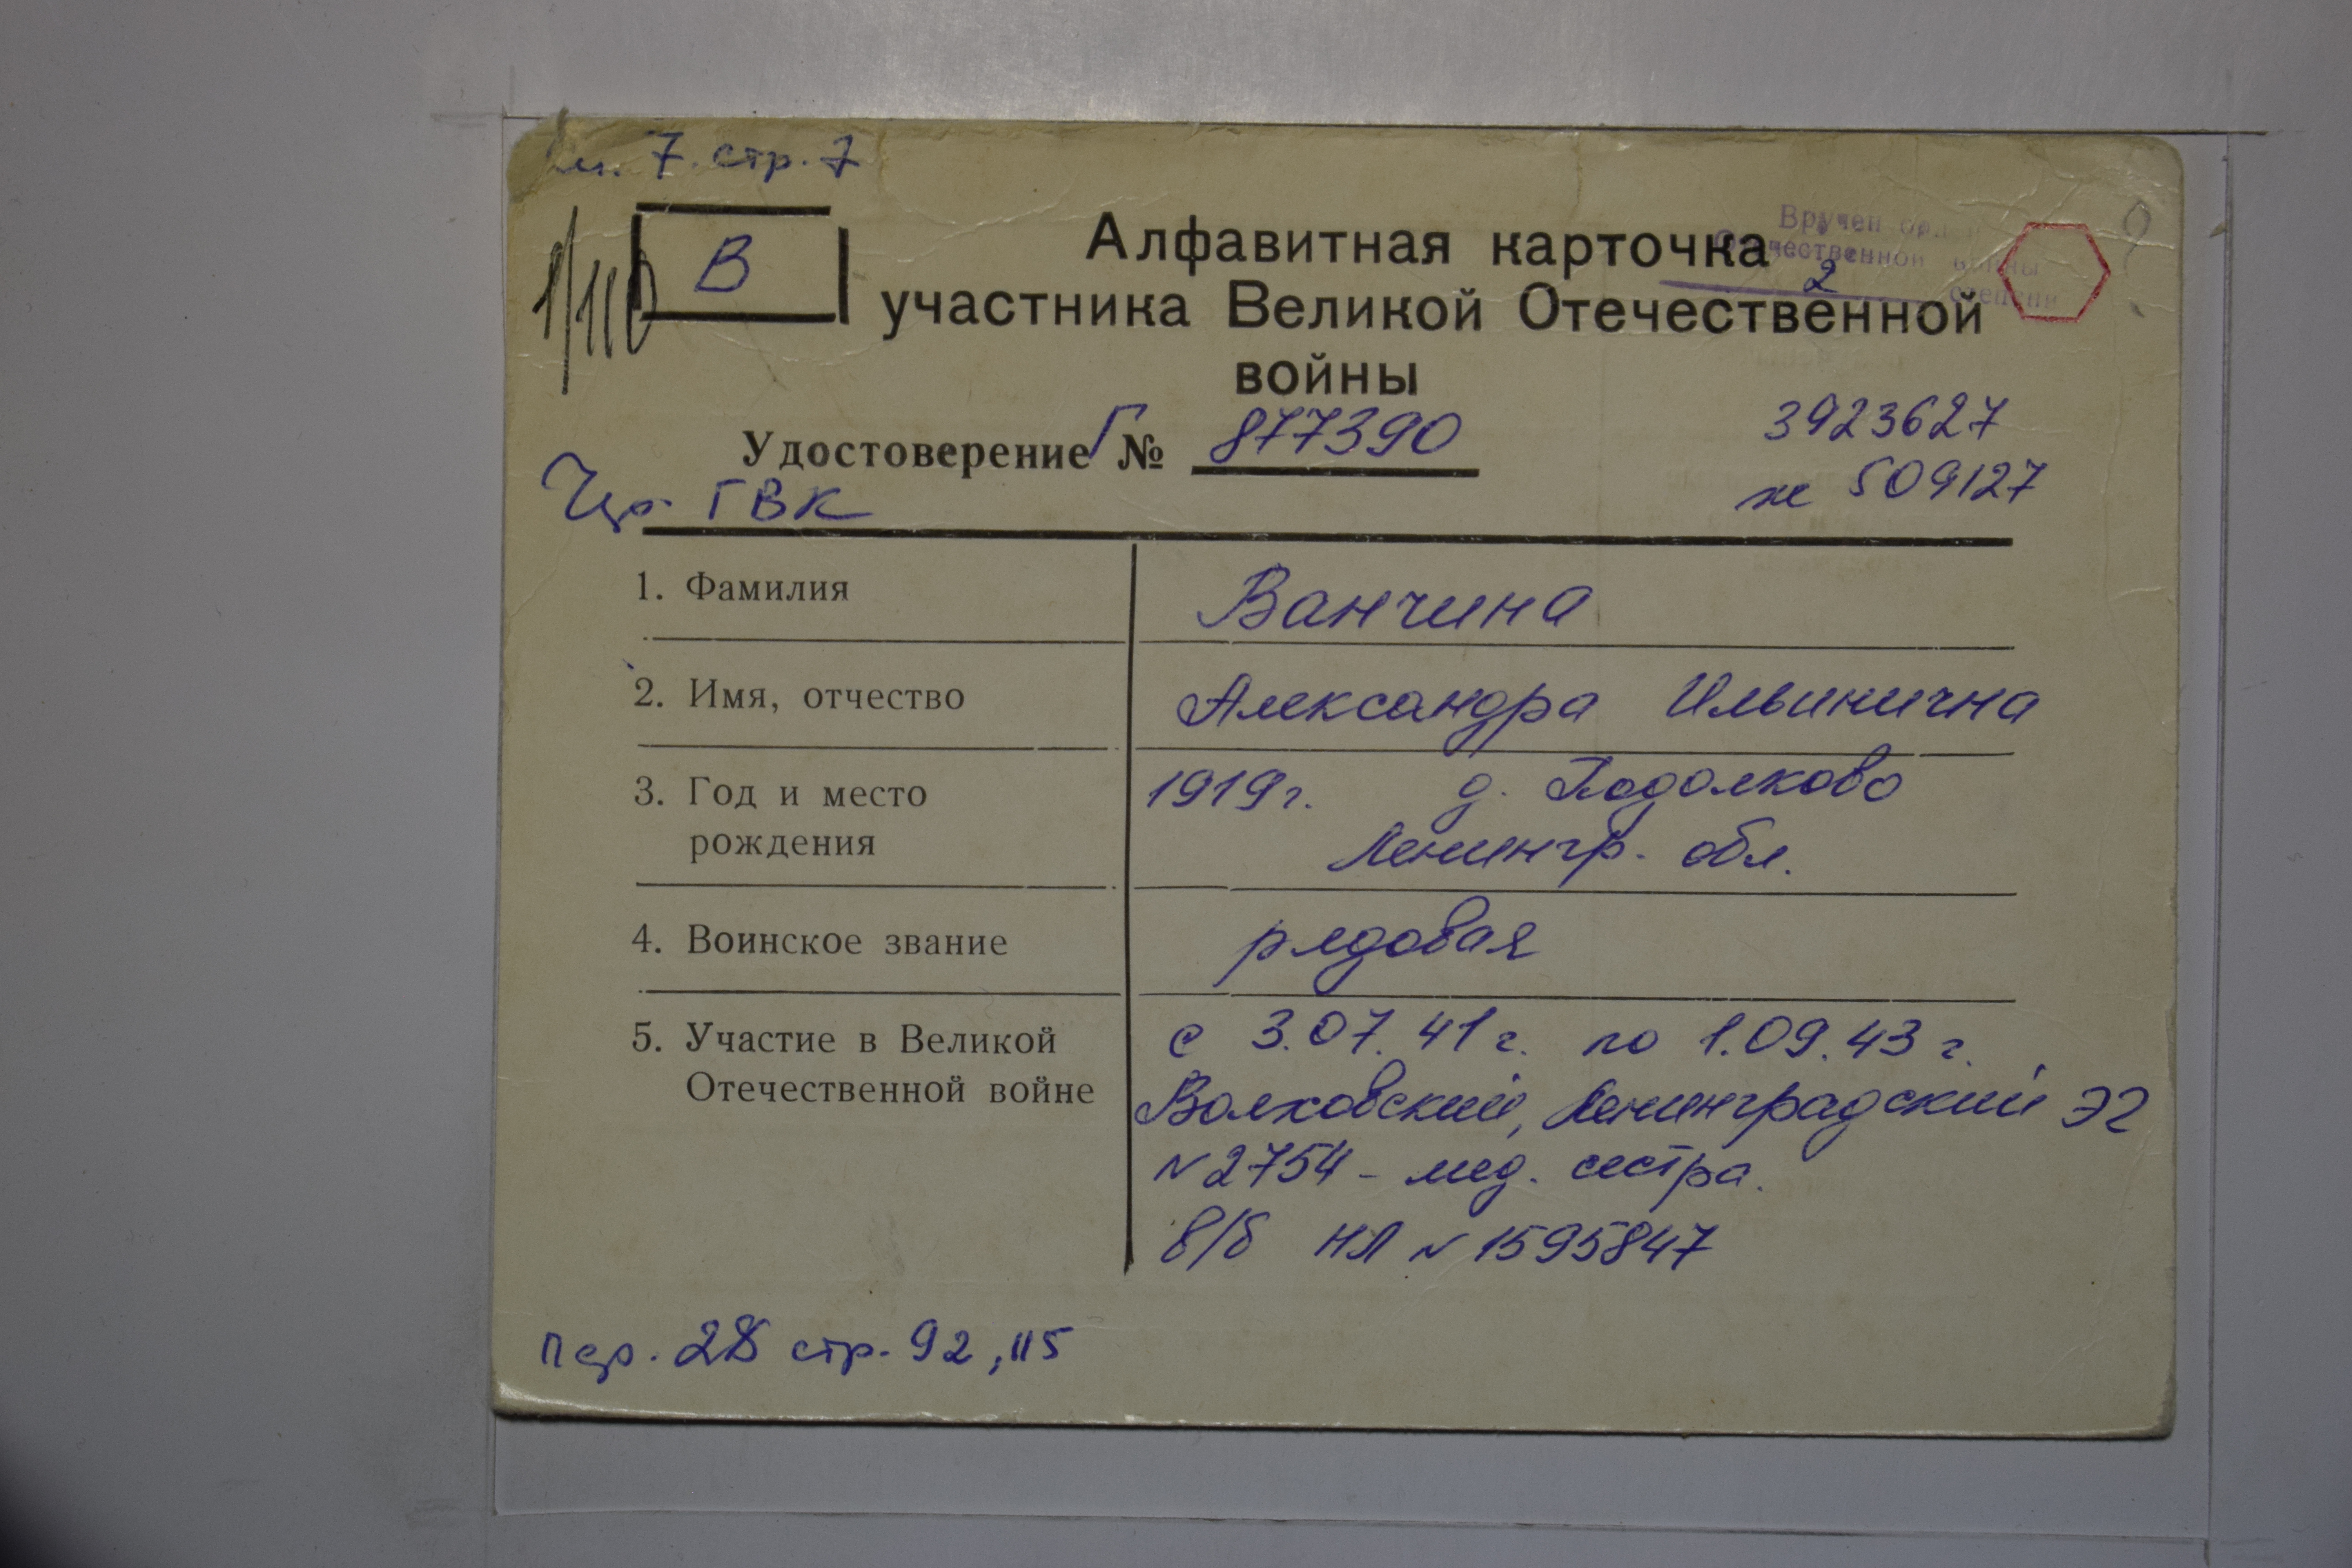 7. стр. 7
В
1/110
Алфавитная карточка
участника Великой Отечественной
войны
Вручен орден
Отечественной войны
2 степени
Удостоверение Г № 877390
3923627
ГВК
же 509127
1. Фамилия
Ванчина
2. Имя, отчество
Александра Ильинична
3. Год и место
рождения
1919г. д. Подолково
Ленингр. обл.
4. Воинское звание
рядовая
5. Участие в Великой
Отечественной войне
с 3.07.41г. по 1.09.43г.
Волховский, Ленинградский ЭГ
№2754 - мед. сестра.
в/б НЛ № 1595847
стр. 92, 115